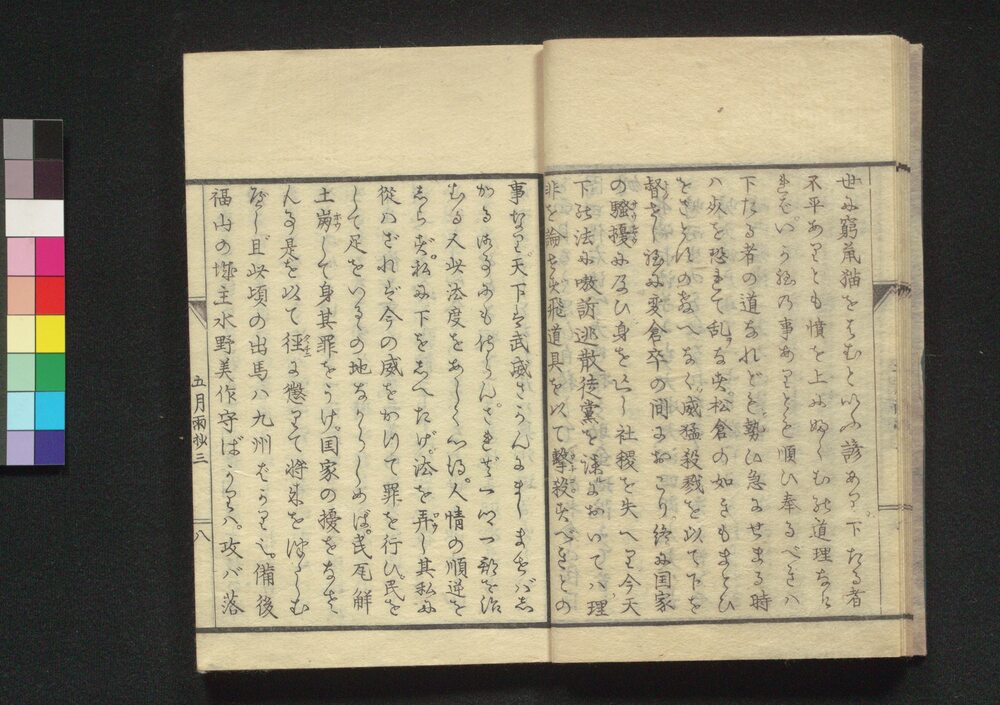 世に窮鼠猫をはむといふ諺あり。下たる者
不平ありとも憤を上にふくむの道理なけ
れば。いか様の事ありとも順ひ奉るべきハ
下たる者の道なれども。勢ひ急にせまる時
ハ災を恐れて乱をなす。松倉の如きもまどひ
をさとすのなへなく。威猛殺戮を以て下を
督せし故に変倉卒の間におこり。終に国家
の騒擾に及び身を亡し社稷を失へり今天
下の法に嗷訴逃散徒党を禁においてハ。理
非を論ぜず飛道具を以て撃殺すべきとの
事なり。天下は武威さかんにましませばし
かる御事にも侍らん。されど一国一郡を治
むる人此法度をあしく心得。人情の順逆を
しらず。私に下をしへたげ。法を弄し其私に
従ハざれば今の威をかりて罪を行ひ。民を
して足をいるるの地なからしめば。民瓦解
土崩して身其罪をうけ。国家の擾をなさ
ん事是を以て徑に懲りて将来を
べし且此頃の出馬ハ九州ばかりに。備後
福山の城主水野美作守ばかりハ。攻バ落
五月雨抄三
八